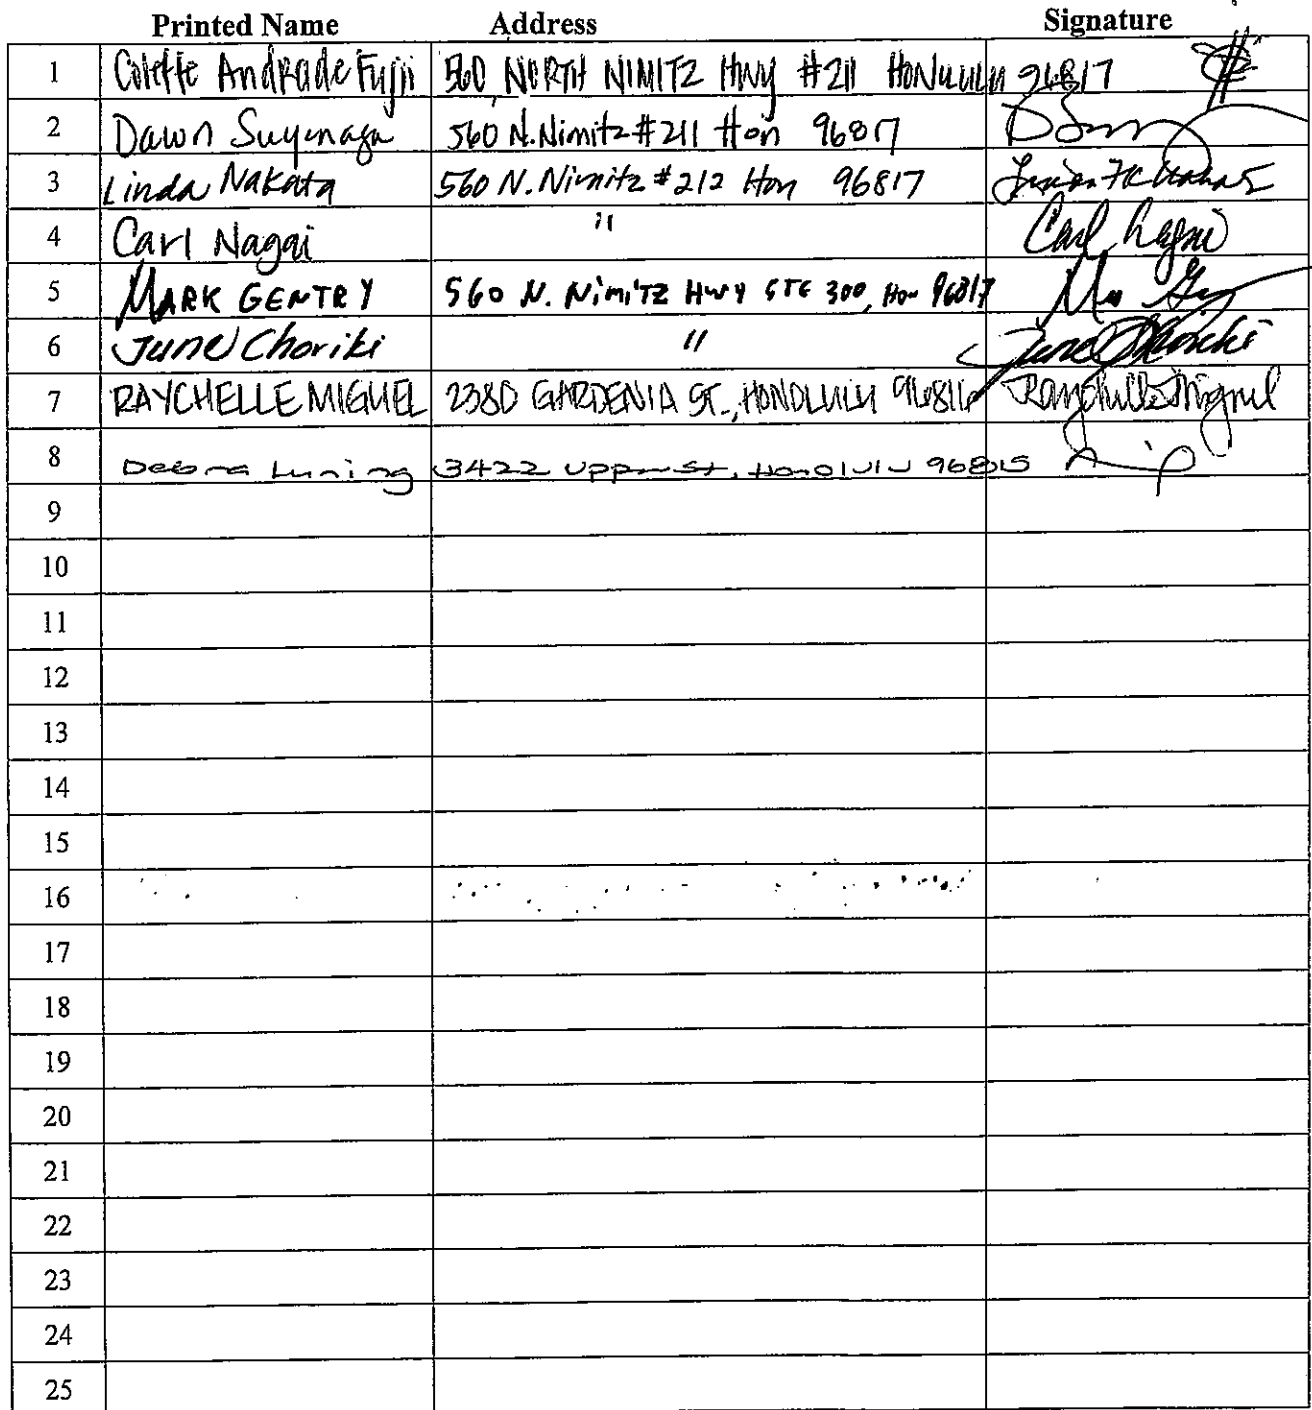 Printed Name Address Signature
1 Colette Andrade Fujii 560 NORTH NIMITZ HWY #211 HONOLULU 96817
2 Dawn Suyenaga 560 N. Nimitz #211 Hon 96817
3 Linda Nakata 560 N. Nimitz #212 Hon 96817
4 Carl Nagai " Carl Nagai
5 MARK GENTRY 560 N. NimiTZ Hwy STE 300, Hon 96817
6 June Choriki " June Choriki
7 RAYCHELLE MIGUEL 2380 GARDENIA ST., HONOLULU 96816 Raychelle Miguel
8 Debra Luning 3422 St, Honolulu 96815
9
10
11
12
13
14
15
16
17
18
19
20
21
22
23
24
25